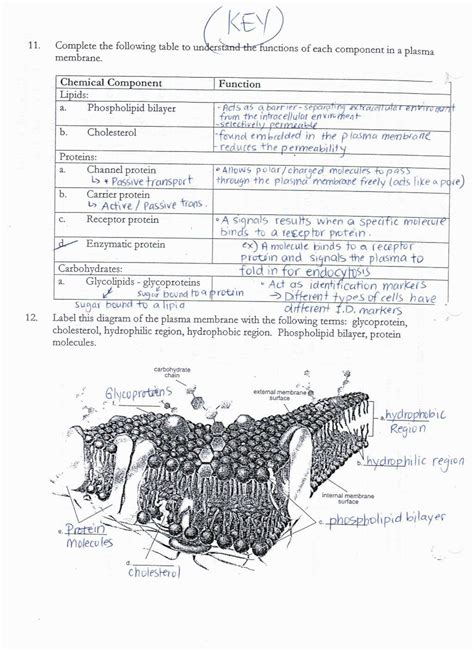 (KEY)
11. Complete the following table to understand the functions of each component in a plasma
membrane.
Chemical Component Function
Lipids:
a. Phospholipid bilayer - Acts as a barrier - separating extracellular enviroment
from the intracellular enviroment
- selectively permeable
b. Cholesterol - found embedded in the plasma membrane
- reduces the permeability
Proteins:
a. Channel protein • Allows polar/charged molecules to pass
↳ * Passive transport through the plasma membrane freely (acts like a pore)
b. Carrier protein
↳ Active / Passive trans.
c. Receptor protein • A signals results when a specific molecule
binds to a receptor protein.
d. Enzymatic protein ex) A molecule binds to a receptor
protein and signals the plasma to
Carbohydrates: fold in for endocytosis
a. Glycolipids - glycoproteins • Act as identification markers
sugar bound to a protein → Different types of cells have
sugar bound to a lipid different I.D. markers
12. Label this diagram of the plasma membrane with the following terms: glycoprotein,
cholesterol, hydrophilic region, hydrophobic region. Phospholipid bilayer, protein
molecules.
carbohydrate
chain
Glycoproteins
external membrane
surface
a. hydrophobic
Region
b. hydrophilic region
internal membrane
surface
c. phospholipid bilayer
e. Protein
Molecules
d.
cholesterol